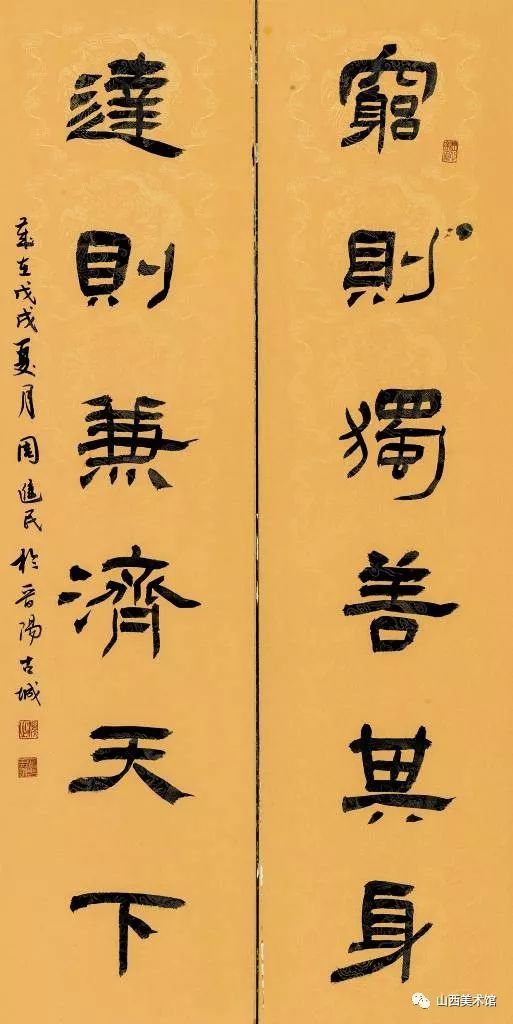 窮則獨善其身
達則兼濟天下
歲在戊戌夏月周進民於晉陽古城
山西美术馆